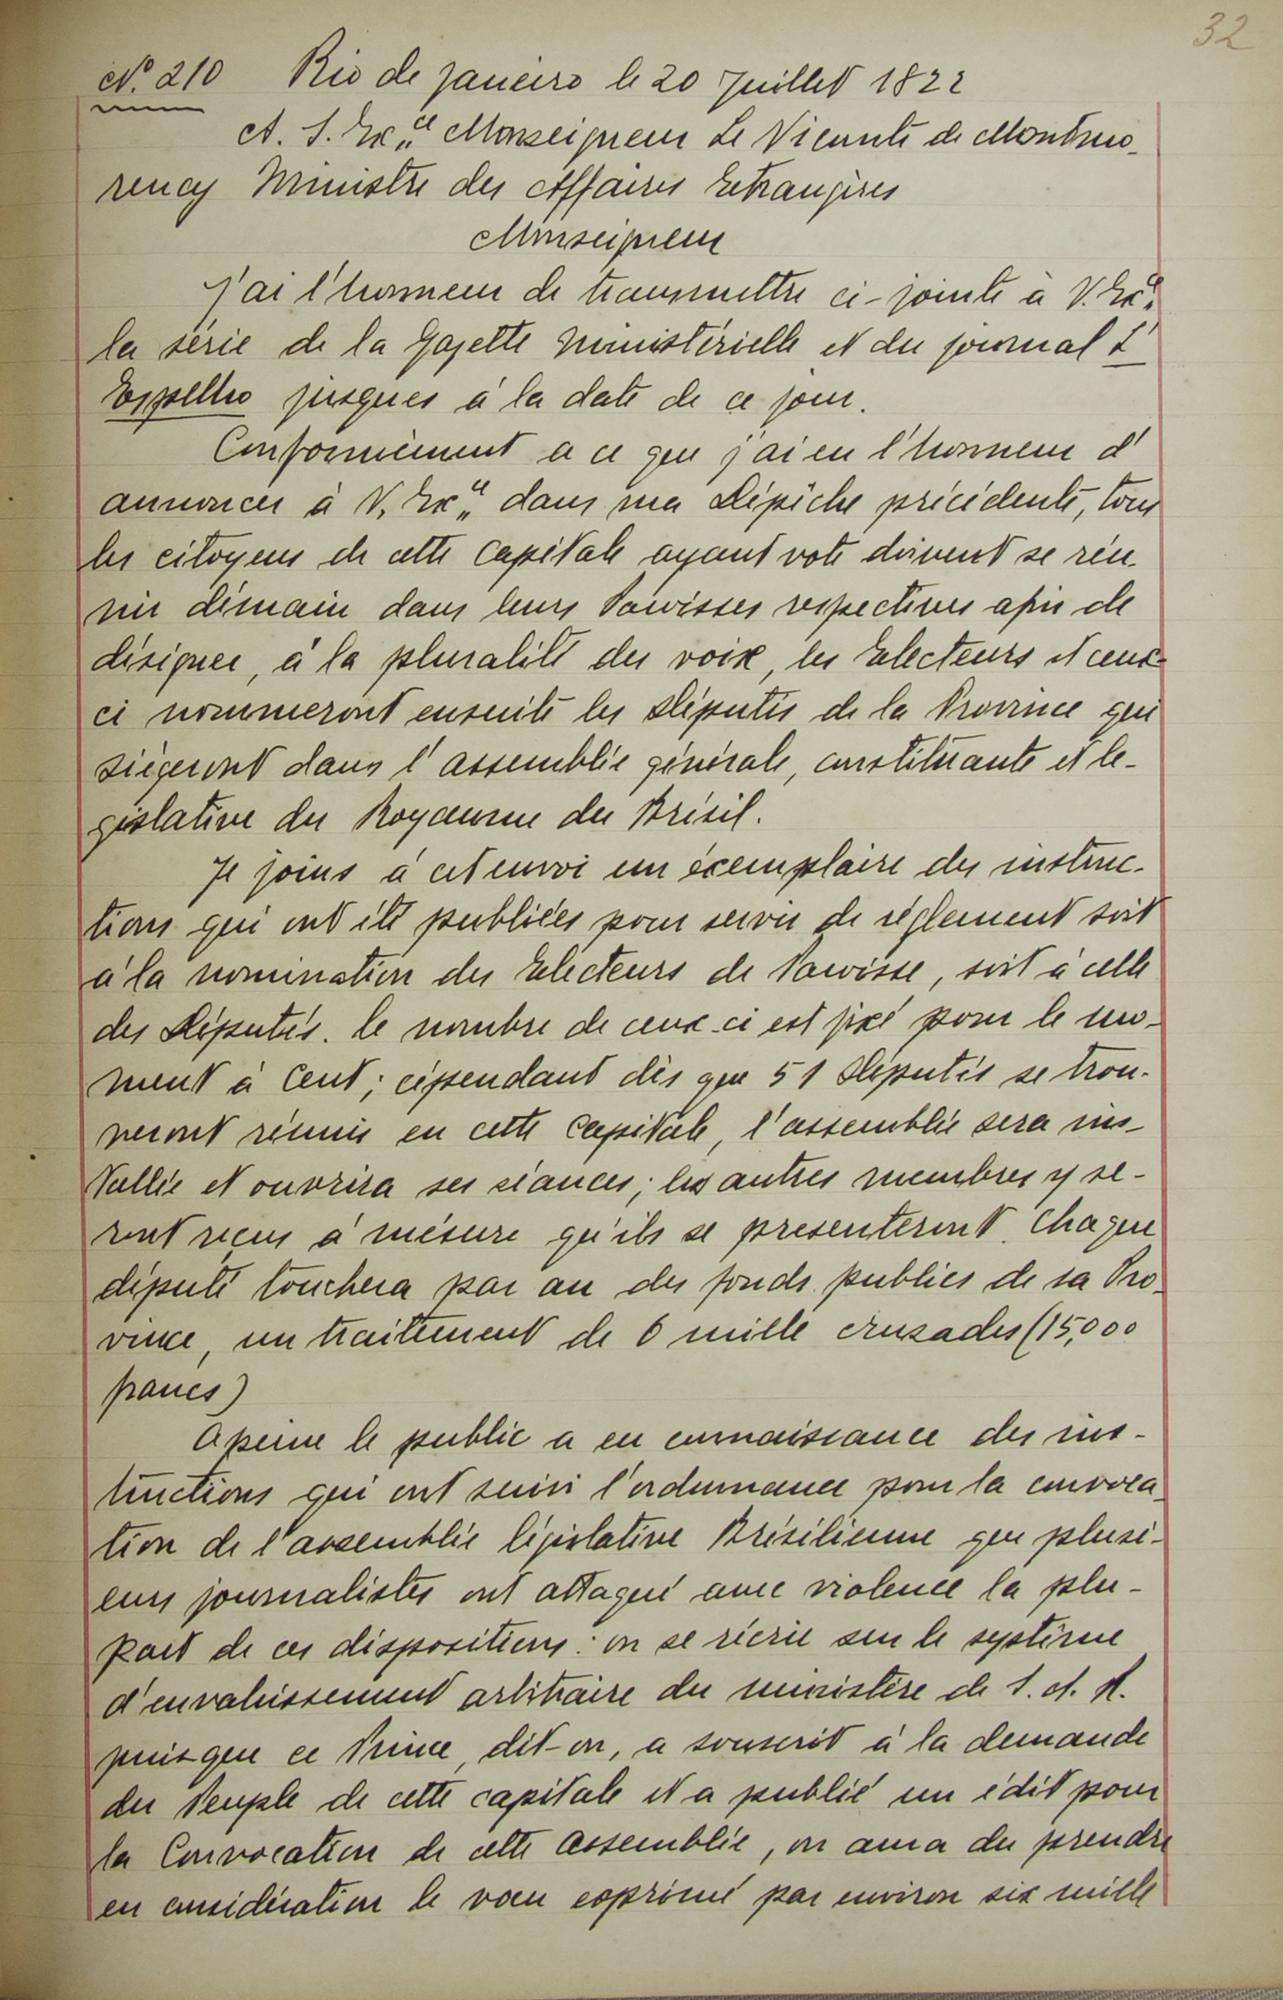 32
N.º 210 Rio de Janeiro le 20 Juillet 1822
A. S. Ex„ce Monseigneur Le Vicomte de Montmo-
rency Ministre des Affaires Etrangères
Monseigneur
J'ai l'honneur de transmettre ci-jointe à V. Exce.
la série de la Gazette Ministérielle et du journal L'
Espelho jusques à la date de ce jour.
Conformément a ce que j'ai eu l'honneur d'
annoncer à V. Ex„ce dans ma Dépêche précédente, tous
les citoyens de cette Capitale ayant vote doivent se réu-
nir démain dans leurs Paroisses respectives afin de
désigner, à la pluralité des voix, les Electeurs et ceux-
ci nommeront ensuite les Députés de la Province qui
siègeront dans l'assemblée générale, constituante et le-
gislative du Royaume du Brésil.
Je joins à cet envoi un éxemplaire des instruc-
tions qui ont été publiées pour servir de réglement soit
à la nomination des Electeurs de Paroisse, soit à celle
des Députés. le nombre de ceux-ci est fixé pour le mo-
ment à Cent; cépendant dès que 51 Députés se trou-
veront réunis en cette Capitale, l'assemblée sera ins-
tallée et ouvrira ses séances; les autres membres y se-
ront reçus à mésure qu'ils se presenteront. Chaque
député touchera par an des fonds publics de sa Pro-
vince, un traitement de 6 mille cruzades (15,000
francs)
A peine le public a eu connaissance des ins-
tructions qui ont suivi l'ordonnance pour la convoca-
tion de l'assemblée législative Brésilienne que plusi-
eurs journalistes ont attaqué avec violence la plu-
part de ces dispositions: on se récrie sur le système
d'envahissement arbitraire du ministère de S. A. R.
puis-que ce Prince, dit-on, a souscrit à la demande
du Peuple de cette capitale et a publié un édit pour
la Convocation de cette Assemblée, on aura du prendre
en considération le voeu exprimé par environ six mille